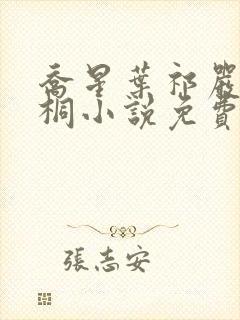 喬星葉祁嚴
桐小說免費
張志安